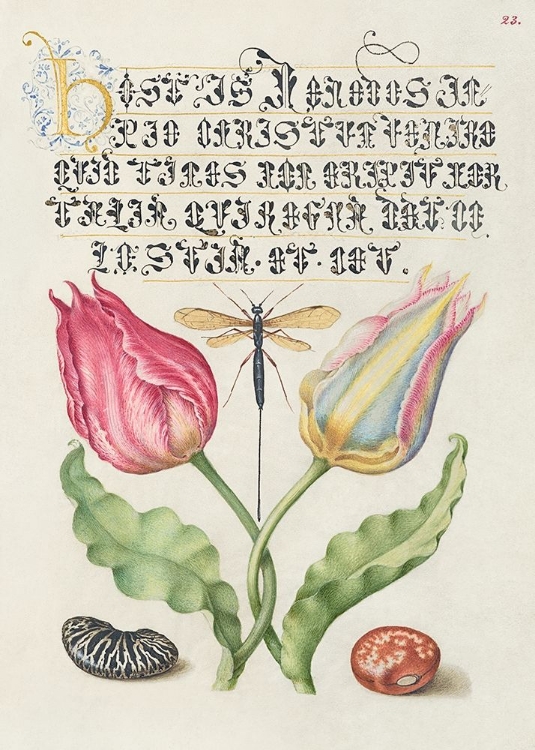 23.
HOSTIS HERODES IM⸗
PIE CHRISTVM VENIRE
QVID TIMES NON ERIPIT MOR
TALIA QVI REGNA DAT CE
LESTIA. ET. CET.